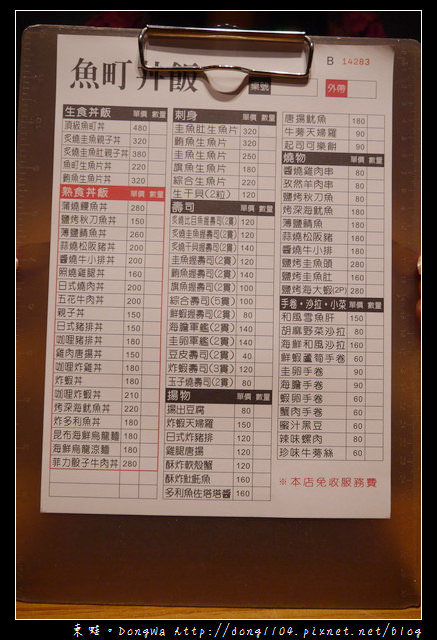 魚町丼飯
桌號
外帶
B 14283
生食丼飯 單價 數量
頂級魚町丼 480
炙燒圭魚親子丼 320
炙燒圭魚肚親子丼 380
魚町生魚片丼 220
鮪魚生魚片丼 320
熟食丼飯 單價 數量
蒲燒鰻魚丼 280
鹽烤秋刀魚丼 150
薄鹽鯖魚丼 260
蒜燒松阪豬丼 200
醬燒牛小排丼 200
照燒雞腿丼 160
日式燒肉丼 200
五花牛肉丼 200
親子丼 150
日式豬排丼 150
咖哩豬排丼 180
雞肉唐揚丼 150
咖哩炸雞丼 180
炸蝦丼 180
咖哩炸蝦丼 210
烤深海魷魚丼 220
炸多利魚丼 180
昆布海鮮烏龍麵 180
海鮮烏龍涼麵 180
菲力骰子牛肉丼 280
刺身 單價 數量
圭魚肚生魚片 320
鮪魚生魚片 320
圭魚生魚片 250
旗魚生魚片 180
綜合生魚片 220
生干貝(2粒) 120
壽司 單價 數量
炙燒比目魚握壽司(2貫) 120
炙燒圭魚握壽司(2貫) 120
炙燒干貝握壽司(2貫) 140
圭魚握壽司(2貫) 100
鮪魚握壽司(2貫) 140
旗魚握壽司(2貫) 100
綜合壽司(5貫) 100
鮮蝦握壽司(2貫) 80
海膽軍艦(2貫) 120
圭卵軍艦(2貫) 120
豆皮壽司(2貫) 40
炸蝦壽司(3貫) 120
玉子燒壽司(2貫) 80
揚物 單價 數量
揚出豆腐 80
炸蝦天婦羅 150
日式炸豬排 120
雞腿唐揚 120
酥炸軟殼蟹 160
酥炸魟魠魚 160
多利魚佐塔塔醬 160
唐揚魷魚 180
牛蒡天婦羅 90
起司可樂餅 90
燒物 單價 數量
醬燒雞肉串 80
孜然羊肉串 80
鹽烤秋刀魚 80
烤深海魷魚 180
薄鹽鯖魚 180
蒜燒松阪豬 160
醬燒牛小排 180
鹽烤圭魚頭 280
鹽烤圭魚肚 160
鹽烤海大蝦(2P) 280
手卷・沙拉・小菜 單價 數量
和風雪魚肝 150
胡麻野菜沙拉 80
海鮮和風沙拉 160
鮮蝦蘆筍手卷 60
圭卵手卷 90
海膽手卷 90
蝦卵手卷 60
蟹肉手卷 60
蜜汁黑豆 60
辣味螺肉 80
珍味牛蒡絲 60
※本店免收服務費
東蛙。DongWa http://dong1104.pixnet.net/blog